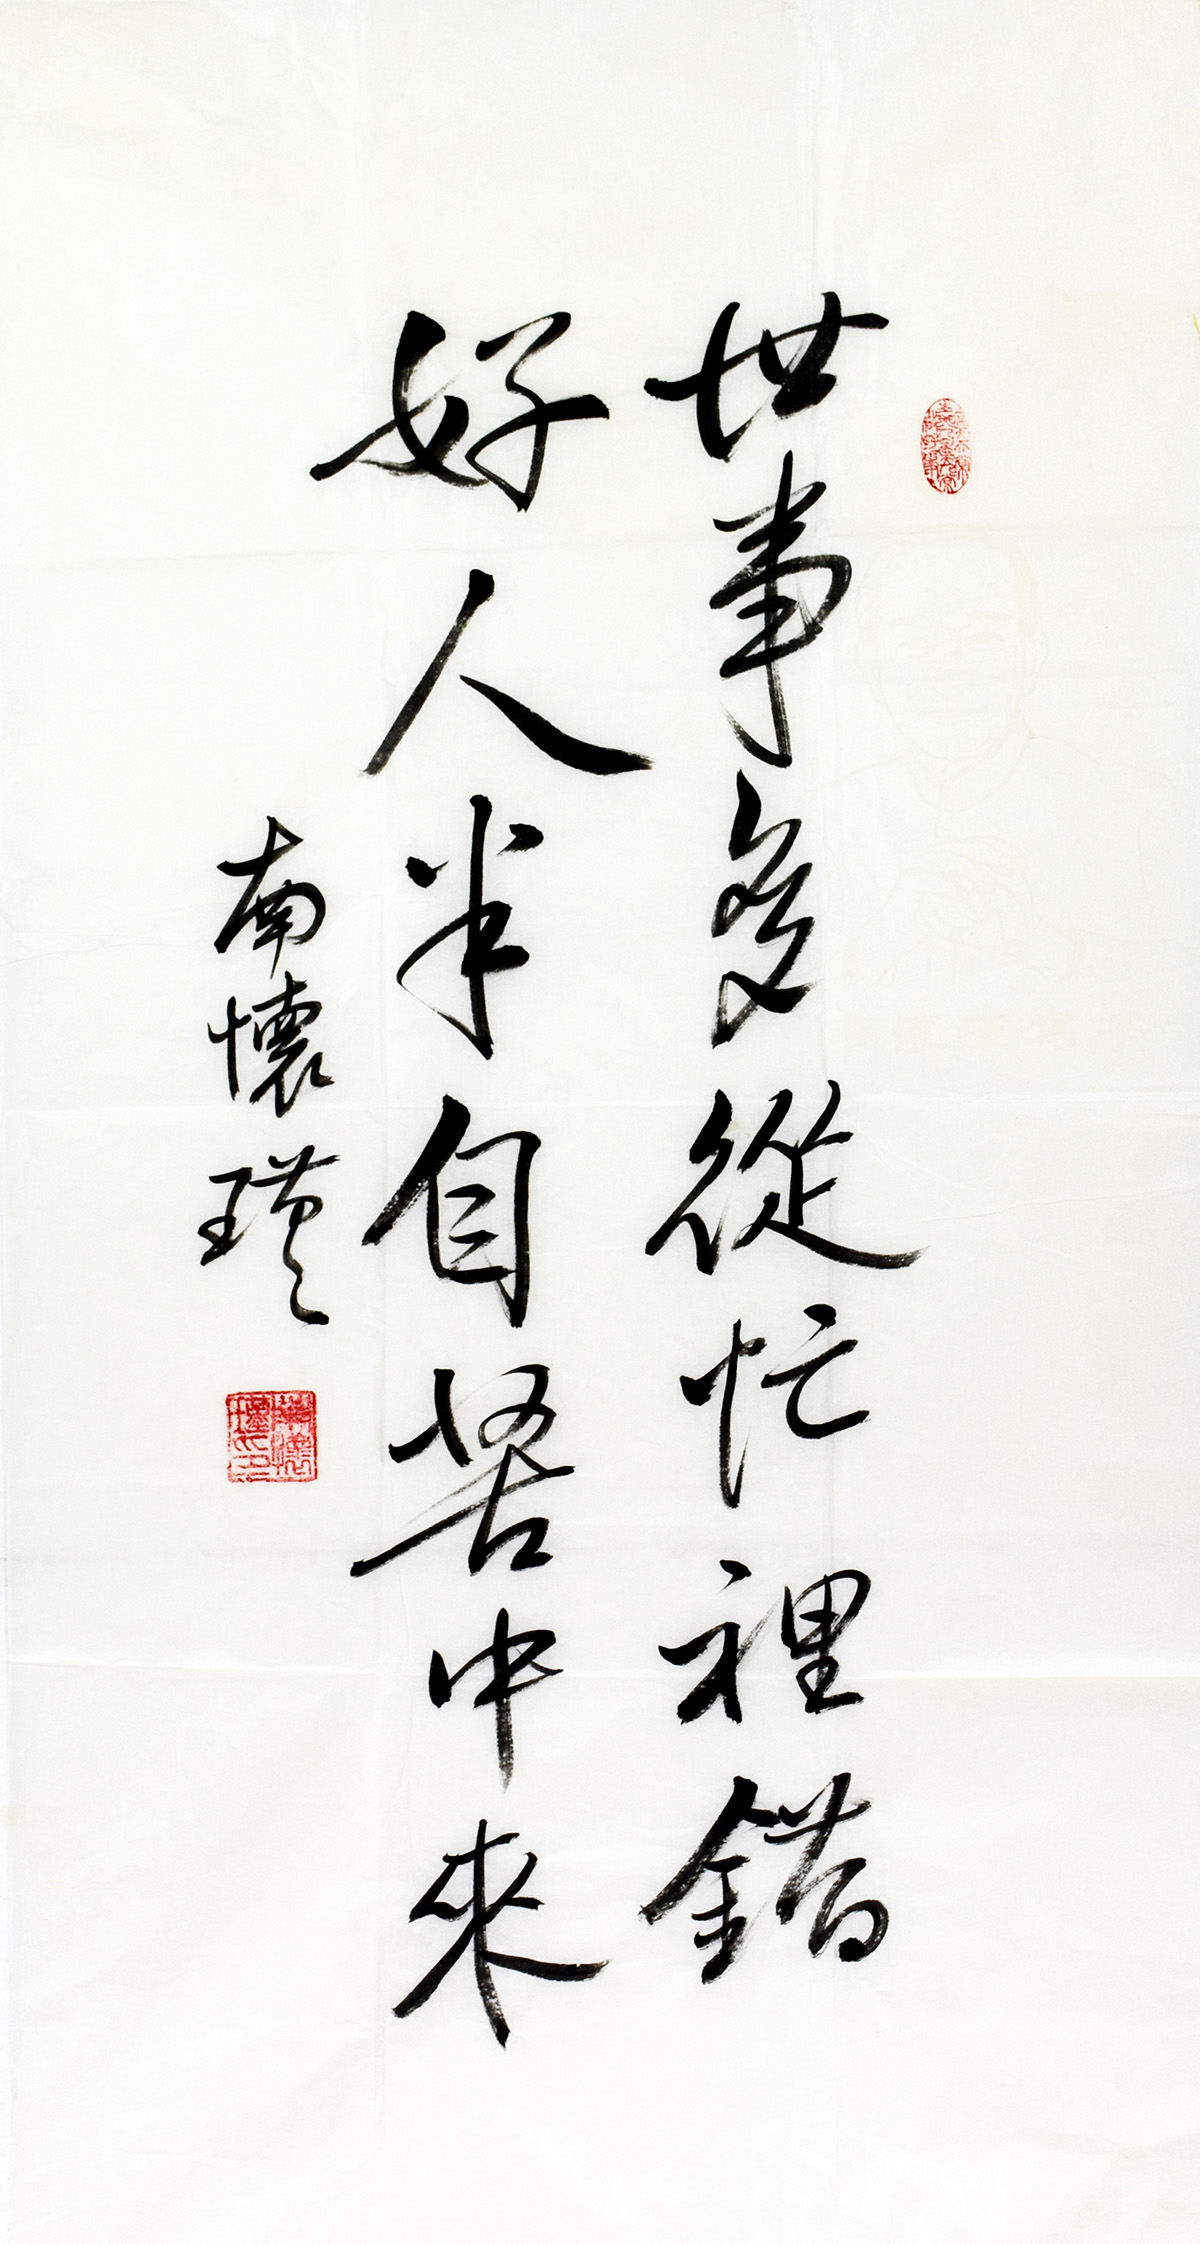 世事多從忙裡錯
好人半自苦中來
南懷瑾